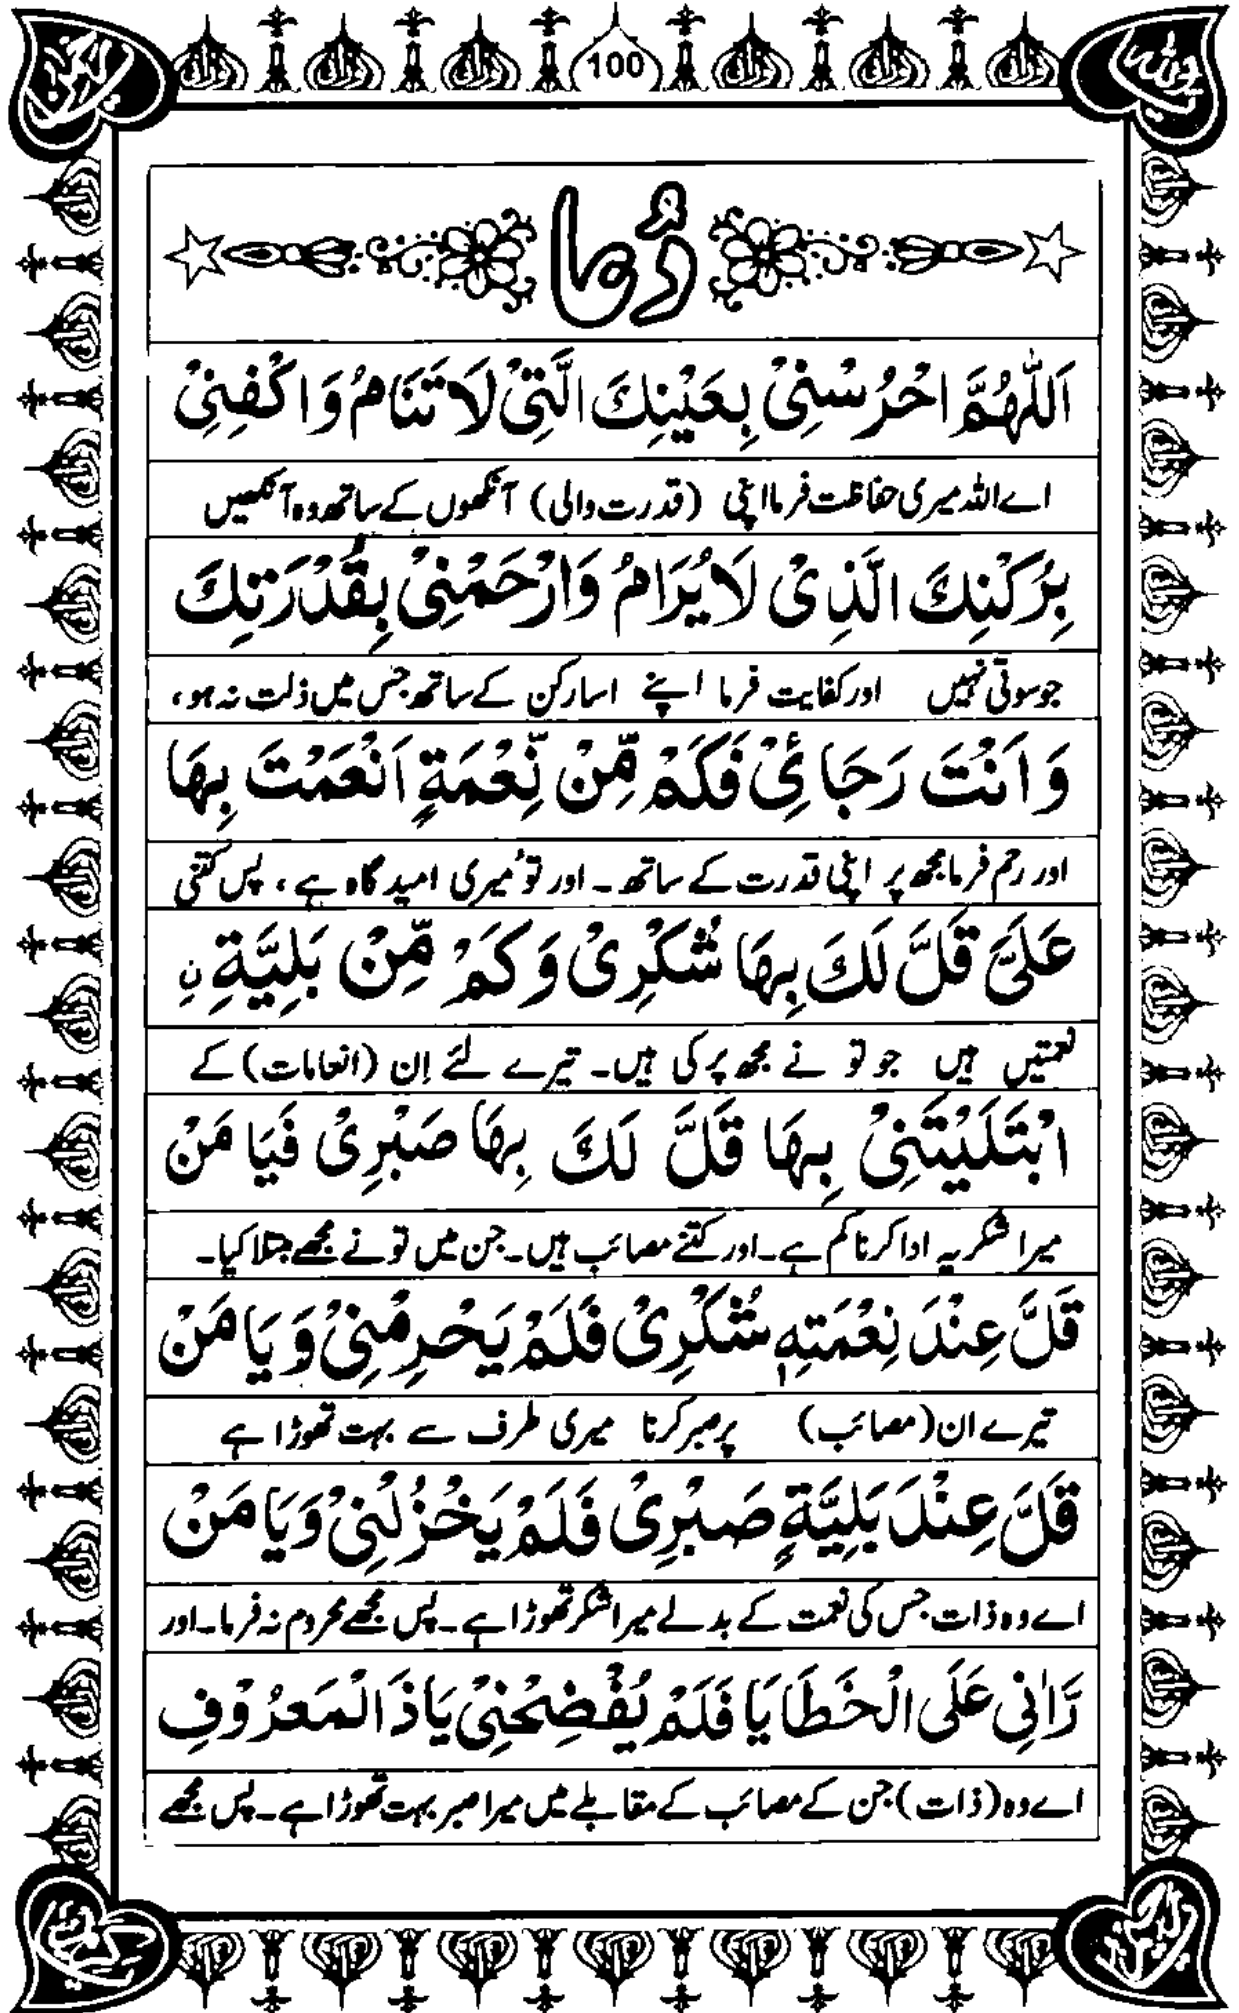 100
دُعا
اَللّٰهُمَّ احْرُسْنِیْ بِعَیْنِكَ الَّتِیْ لَا تَنَامُ وَاكْفِنِیْ
اے اللہ میری حفاظت فرما اپنی (قدرت والی) آنکھوں کے ساتھ وہ آنکھیں
بِرُكْنِكَ الَّذِیْ لَا یُرَامُ وَارْحَمْنِیْ بِقُدْرَتِكَ
جو سوتی نہیں اور کفایت فرما اپنے اسا رکن کے ساتھ جس میں ذلت نہ ہو،
وَاَنْتَ رَجَائِیْ فَكَمْ مِّنْ نِّعْمَةٍ اَنْعَمْتَ بِهَا
اور رحم فرما مجھ پر اپنی قدرت کے ساتھ۔ اور تُو میری امید گاہ ہے، پس کتنی
عَلَیَّ قَلَّ لَكَ بِهَا شُكْرِیْ وَكَمْ مِّنْ بَلِیَّةِ نِ
نعمتیں ہیں جو تو نے مجھ پر کی ہیں۔ تیرے لئے اِن (انعامات) کے
ابْتَلَیْتَنِیْ بِهَا قَلَّ لَكَ بِهَا صَبْرِیْ فَیَا مَنْ
میرا شکریہ ادا کرنا کم ہے۔ اور کتنے مصائب ہیں۔ جن میں تو نے مجھے مبتلا کیا۔
قَلَّ عِنْدَ نِعْمَتِهٖ شُكْرِیْ فَلَمْ یَحْرِمْنِیْ وَیَا مَنْ
تیرے ان (مصائب) پر صبر کرنا میری طرف سے بہت تھوڑا ہے
قَلَّ عِنْدَ بَلِیَّةٍ صَبْرِیْ فَلَمْ یَخْزُلْنِیْ وَیَا مَنْ
اے وہ ذات جس کی نعمت کے بدلے میرا شکر تھوڑا ہے۔ پس مجھے محروم نہ فرما۔ اور
رَّاٰنِیْ عَلَی الْخَطَایَا فَلَمْ یُفْضِحْنِیْ یَا ذَالْمَعْرُوْفِ
اے وہ (ذات) جن کے مصائب کے مقابلے میں میرا صبر بہت تھوڑا ہے۔ پس مجھے